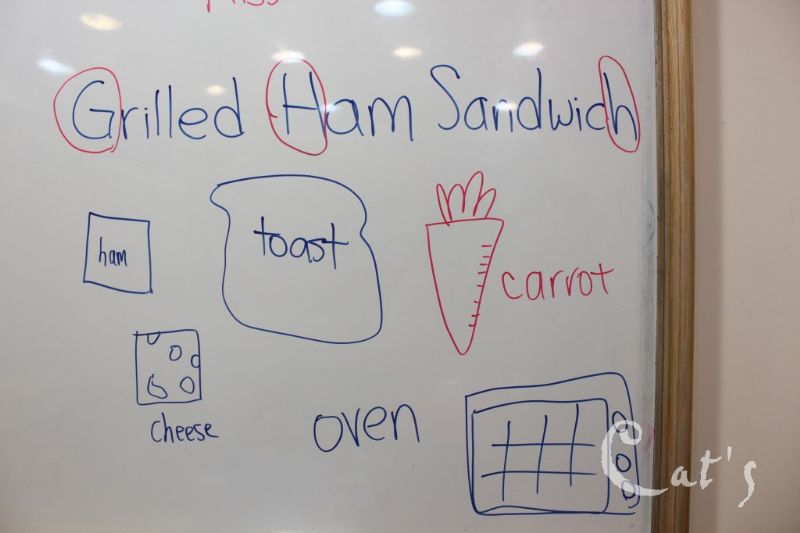 Grilled Ham Sandwich
ham
toast
carrot
cheese
oven
Cat's